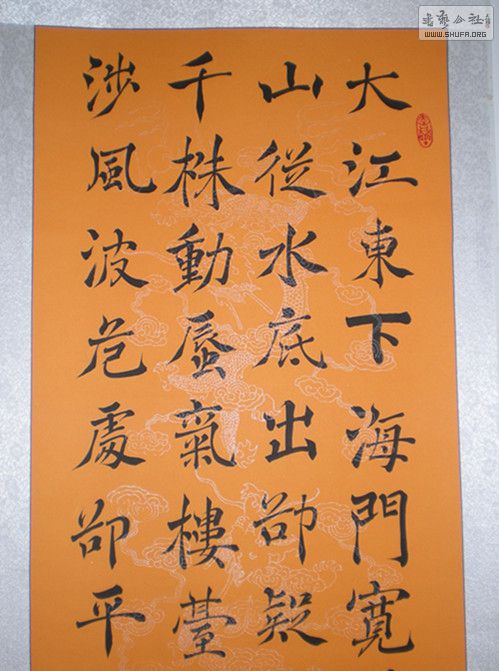 大江東下海門寬
山從水底出卻疑
千株動蜃氣樓臺
涉風波危處卻平
書藝公社
WWW.SHUFA.ORG